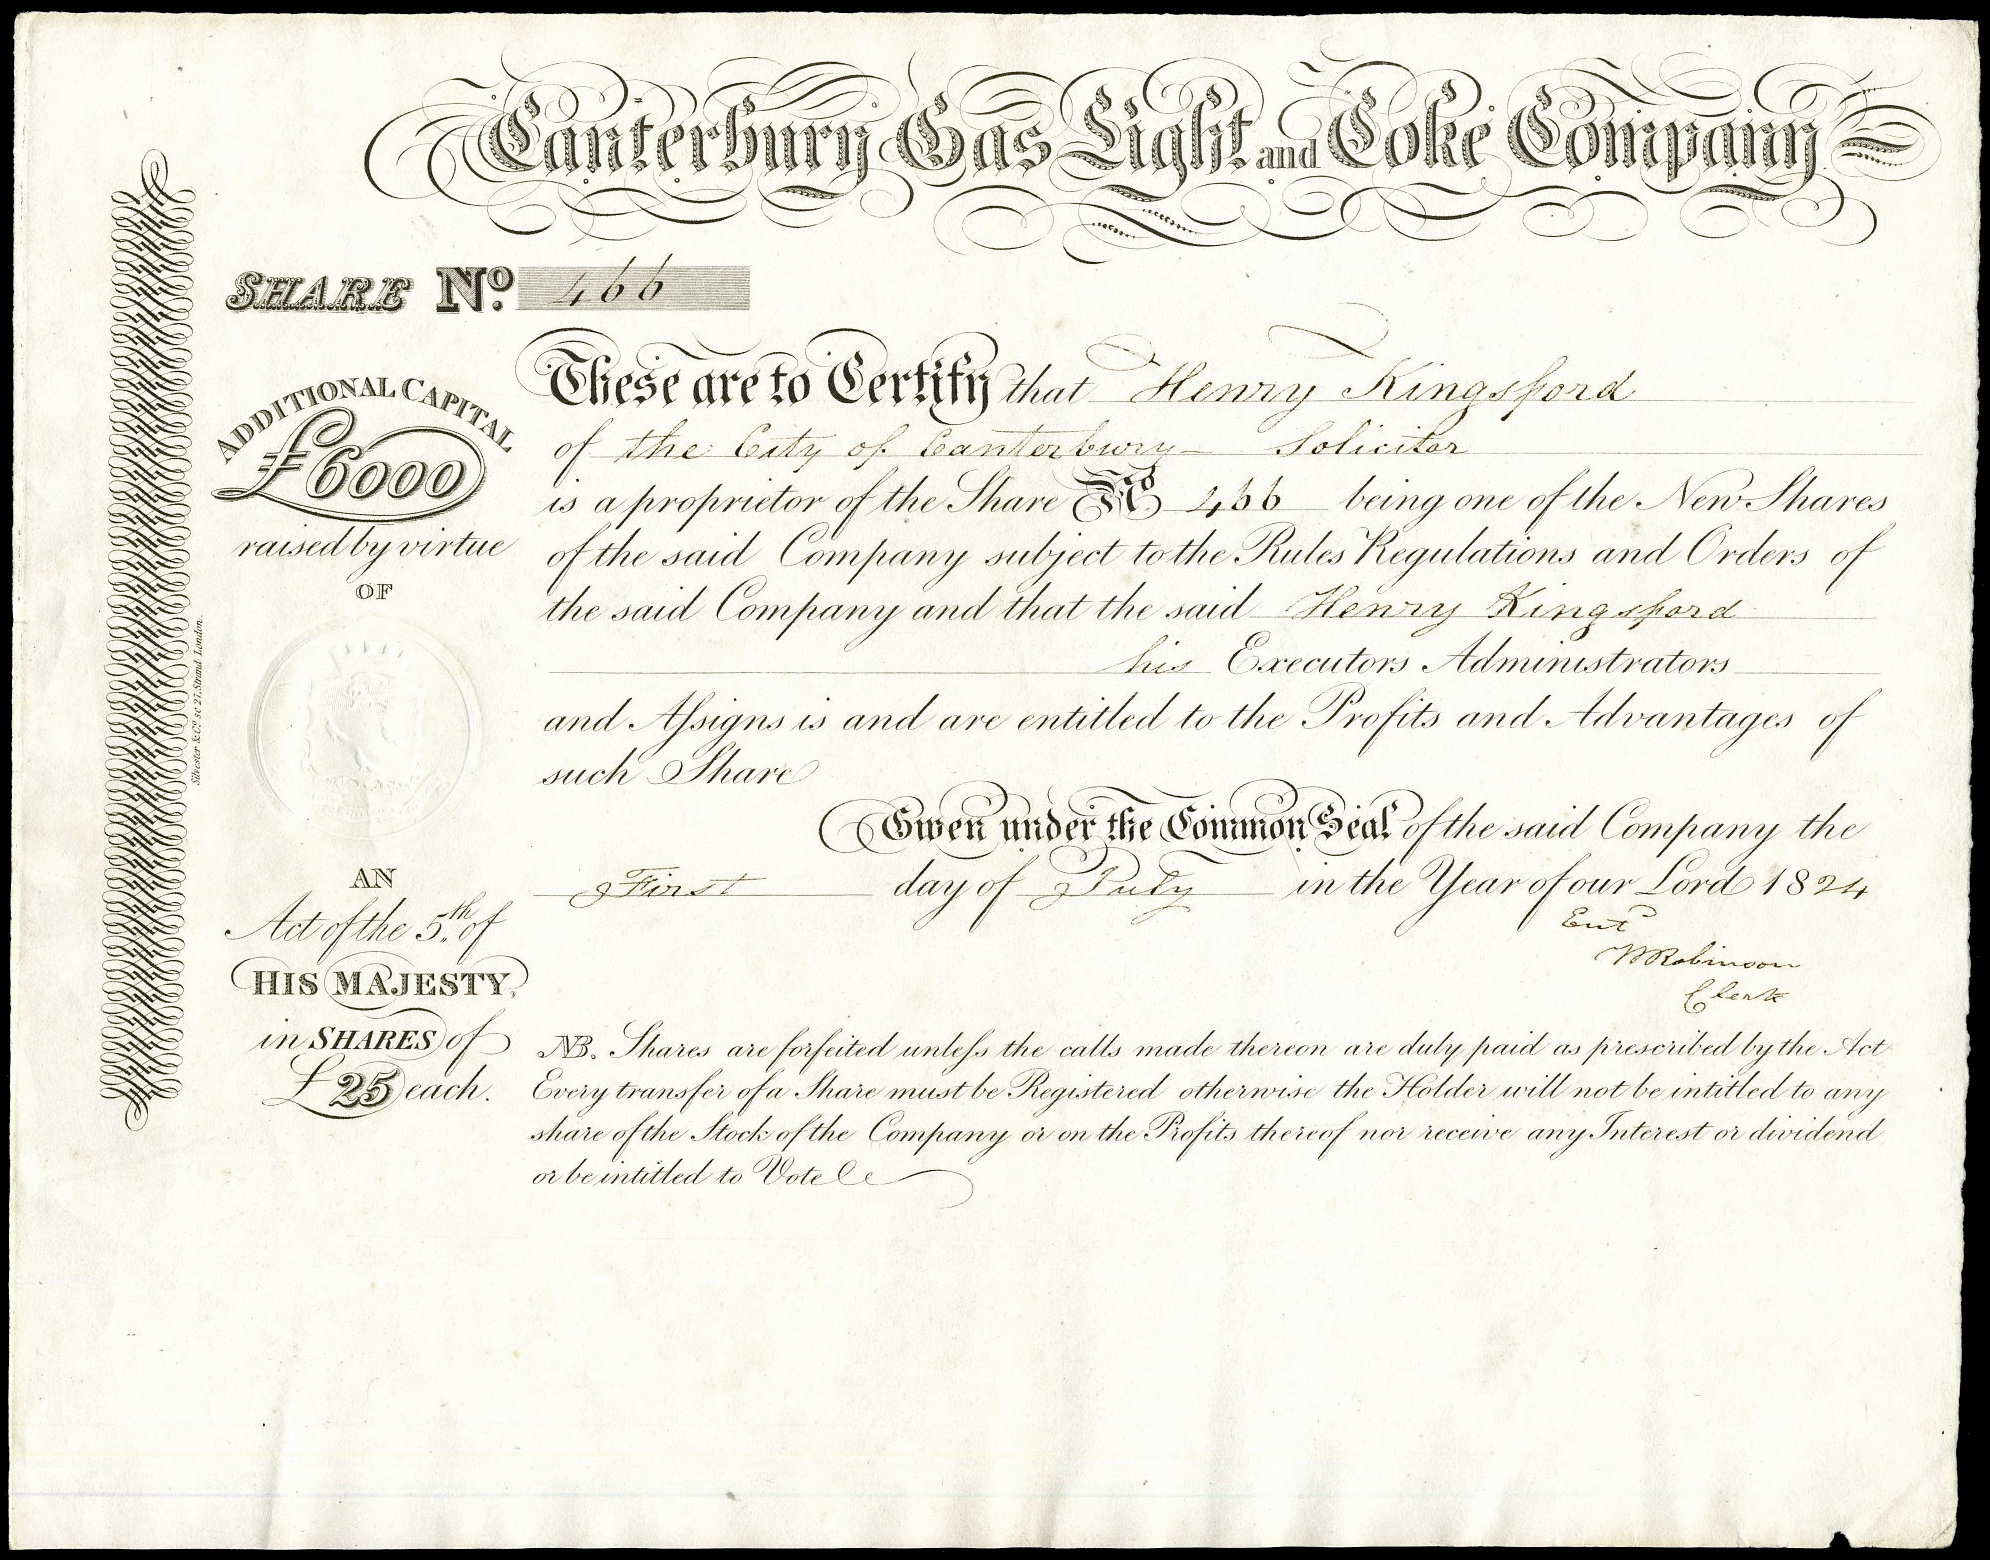 Canterbury Gas Light and Coke Company
SHARE No. 466
ADDITIONAL CAPITAL
£6000
raised by virtue
OF
AN
Act of the 5.th of
HIS MAJESTY,
in SHARES of
£25 each.
Silvester & Co. sc. 27, Strand London.
These are to Certify that Henry Kingsford
of the City of Canterbury – Solicitor
is a proprietor of the Share No. 466 being one of the New Shares
of the said Company subject to the Rules Regulations and Orders of
the said Company and that the said Henry Kingsford
his Executors Administrators
and Aſsigns is and are entitled to the Profits and Advantages of
such Share
Given under the Common Seal of the said Company the
First day of July in the Year of our Lord 1824
Entd
W Robinson
Clerk
NB. Shares are forfeited unleſs the calls made thereon are duly paid as prescribed by the Act
Every transfer of a Share must be Registered otherwise the Holder will not be intitled to any
share of the Stock of the Company or on the Profits thereof nor receive any Interest or dividend
or be intitled to Vote